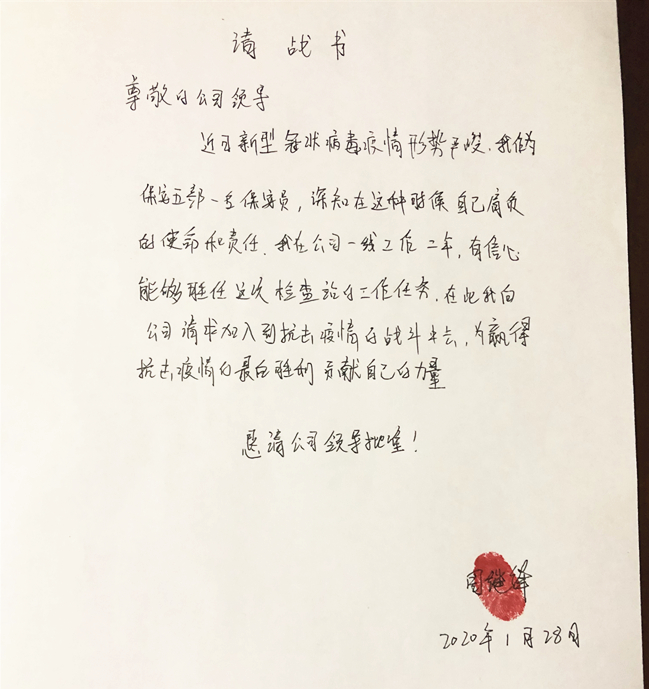 请战书
尊敬的公司领导
近日新型冠状病毒疫情形势严峻.我作为
保安五部一名保安员，深知在这种时候自己肩负
的使命和责任.我在公司一线工作二年,有信心
能够胜任这次检查站的工作任务.在此我向
公司请求加入到抗击疫情的战斗中去,为赢得
抗击疫情的最后胜利贡献自己的力量
恳请公司领导批准!
周继
2020年1月28日